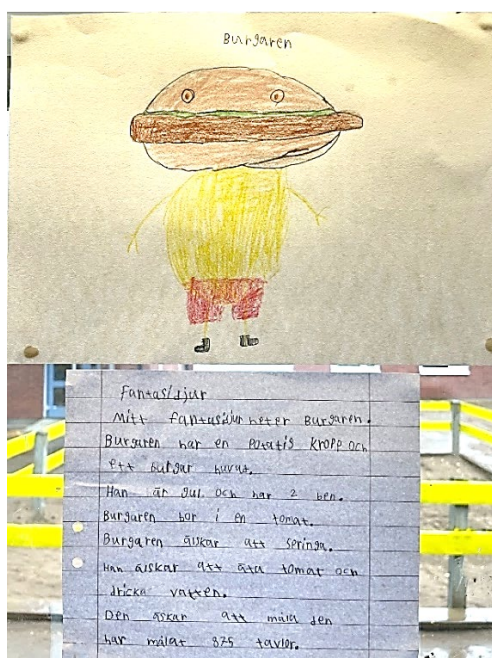 Burgaren
Fantasidjur
Mitt fantasidjur heter Burgaren.
Burgaren har en potatis kropp och
ett burgar huvut.
Han är gul och har 2 ben.
Burgaren bor i en tomat.
Burgaren älskar att seringa.
Han älskar att äta tomat och
dricka vatten.
Den äskar att måla den
har målat 875 tavlor.